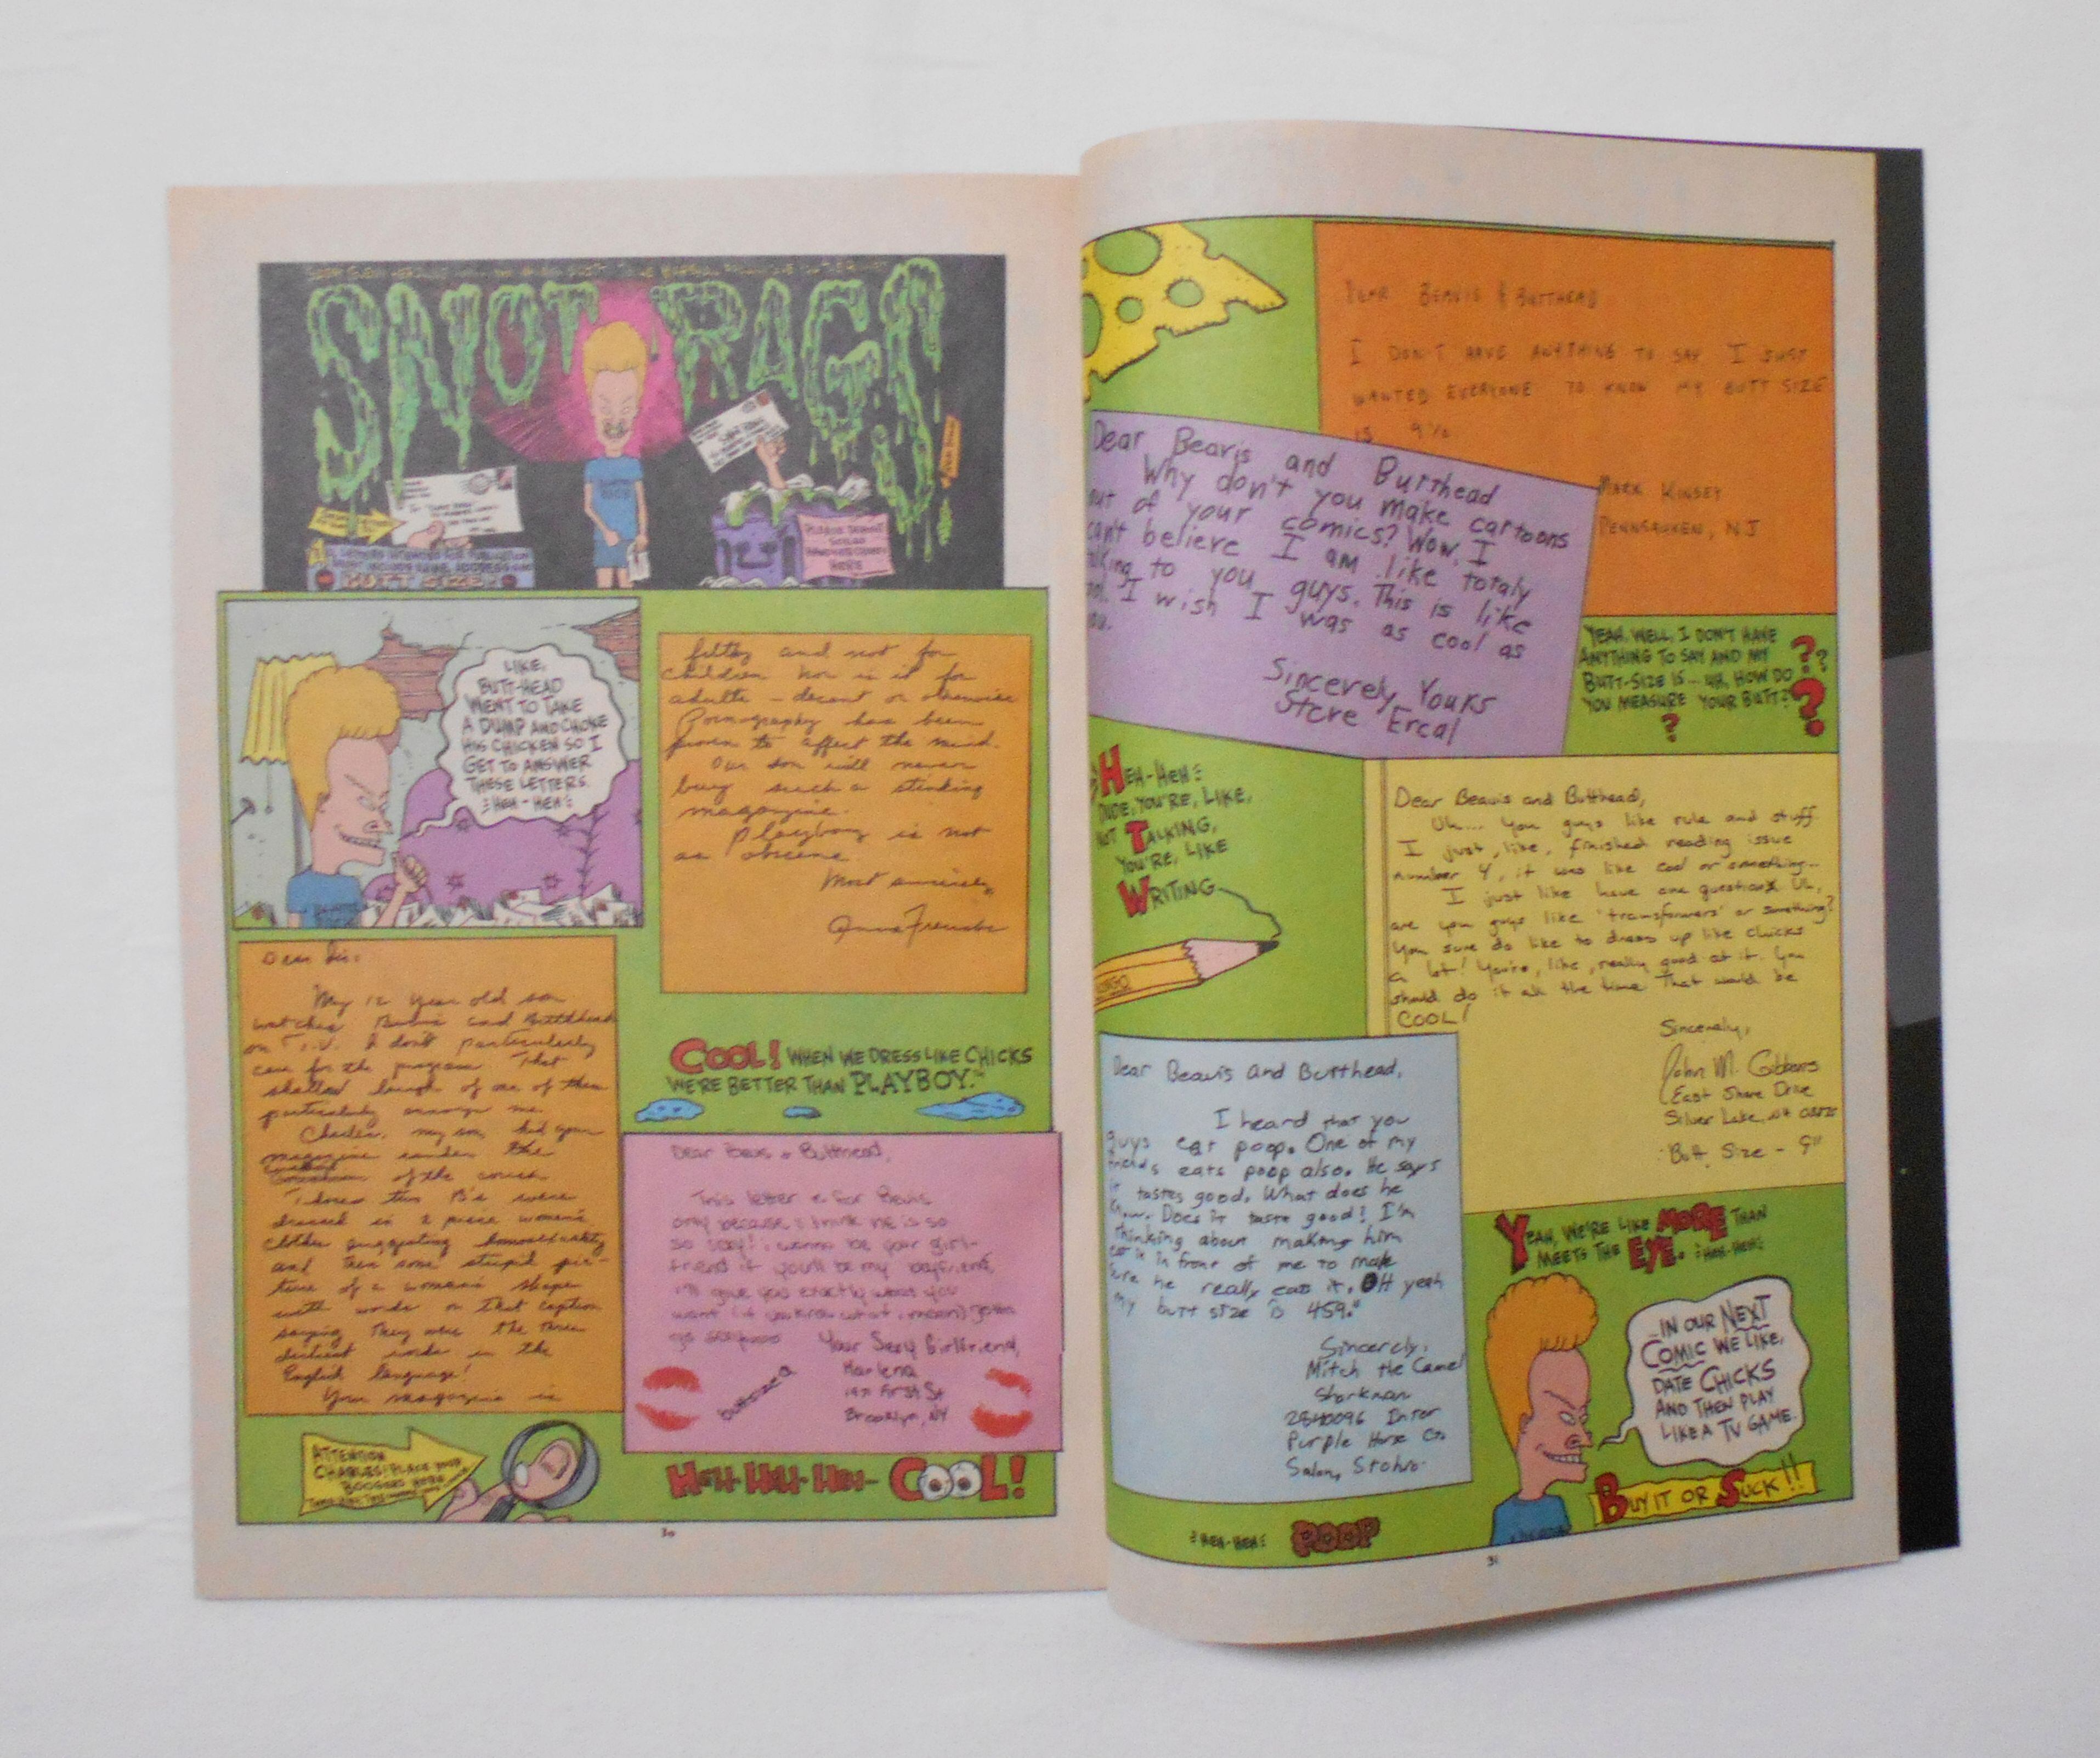 SNOT RAG
BUTT SIZE!
HERE
LIKE,
BUTT-HEAD
WENT TO TAKE
A DUMP AND CHOKE
HIS CHICKEN SO I
GET TO ANSWER
THESE LETTERS.
HEH-HEH
Dear Sir:
My 12 year old son
watches Beavis and Butthead
on T.V. I don't particularly
care for the program. That
laugh of one of them
particularly annoys me.
Charles, my son, hid your
magazine under the
of the couch.
two B's were
dressed in 2 piece women's
clothes suggesting homosexuality
and then some stupid pic-
ture of a woman's shape
with words on that caption
saying they were the three
words in the
English language!
Your magazine is
filthy and not for
children nor is it for
adults - decent or otherwise
Pornography has been
proven to affect the mind.
Our son will never
buy such a stinking
magazine.
Playboy is not
as obscene
Most sincerely,
COOL! WHEN WE DRESS LIKE CHICKS
WE'RE BETTER THAN PLAYBOY.™
Dear Beavis & Butthead,
This letter is for Beavis
only because I think he is so
so sexy! I wanna be your girl-
friend if you'll be my boyfriend,
I'll give you exactly what you
want (if you know what I mean)
Your Sexy Girlfriend,
Harlena
First St
Brooklyn, NY
buttsize 9
ATTENTION
CHARLES! PLACE YOUR
BOOGERS HERE
HEH-HEH-HEH- COOL!
30
DEAR BEAVIS & BUTTHEAD
I DON'T HAVE ANYTHING TO SAY I JUST
WANTED EVERYONE TO KNOW MY BUTT SIZE
IS 9½
MARK KINSEY
PENNSAUKEN, NJ
Dear Beavis and Butthead
Why don't you make cartoons
out of your comics? Wow, I
can't believe I am like totaly
to you guys. This is like
I wish I was as cool as
Sincerely Yours
Steve Ercal
YEAH, WELL, I DON'T HAVE
ANYTHING TO SAY AND MY
BUTT-SIZE IS... UH, HOW DO
YOU MEASURE YOUR BUTT?
HEH-HEH
DUDE, YOU'RE, LIKE,
NOT TALKING,
YOU'RE, LIKE
WRITING
Dear Beavis and Butthead,
Uh... you guys like rule and stuff.
I just, like, finished reading issue
number 4, it was like cool or something...
I just like have one question. Uh,
are you guys like 'transformers' or something?
You sure do like to dress up like chicks
a lot! You're, like, really good at it. You
should do it all the time. That would be
COOL!
Sincerely,
John M. Gibbons
East Shore Drive
Silver Lake, NH
Butt Size - 9"
Dear Beavis and Butthead,
I heard that you
guys eat poop. One of my
friends eats poop also. He says
it tastes good. What does he
know. Does it taste good! I'm
thinking about making him
eat it in front of me to make
sure he really eats it. OH yeah
my butt size is 459."
Sincerely,
Mitch the Camel
Storkman
2840096 Inter
Purple Horse
YEAH, WE'RE LIKE MORE THAN
MEETS THE EYE. HEH-HEH
IN OUR NEXT
COMIC WE LIKE,
DATE CHICKS
AND THEN PLAY
LIKE A TV GAME.
BUY IT OR SUCK!!
HEH-HEH POOP
31